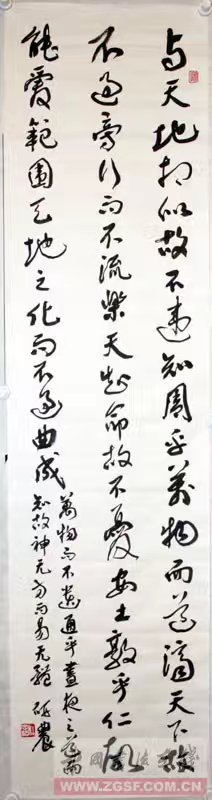 与天地相似故不違知周乎萬物而道濟天下故
不過旁行而不流樂天知命故不憂安土敦乎仁故
能愛範圍天地之化而不過曲成
萬物而不遺通乎晝夜之道而
知故神无方而易无體 農
WWW.ZGSF.COM.CN